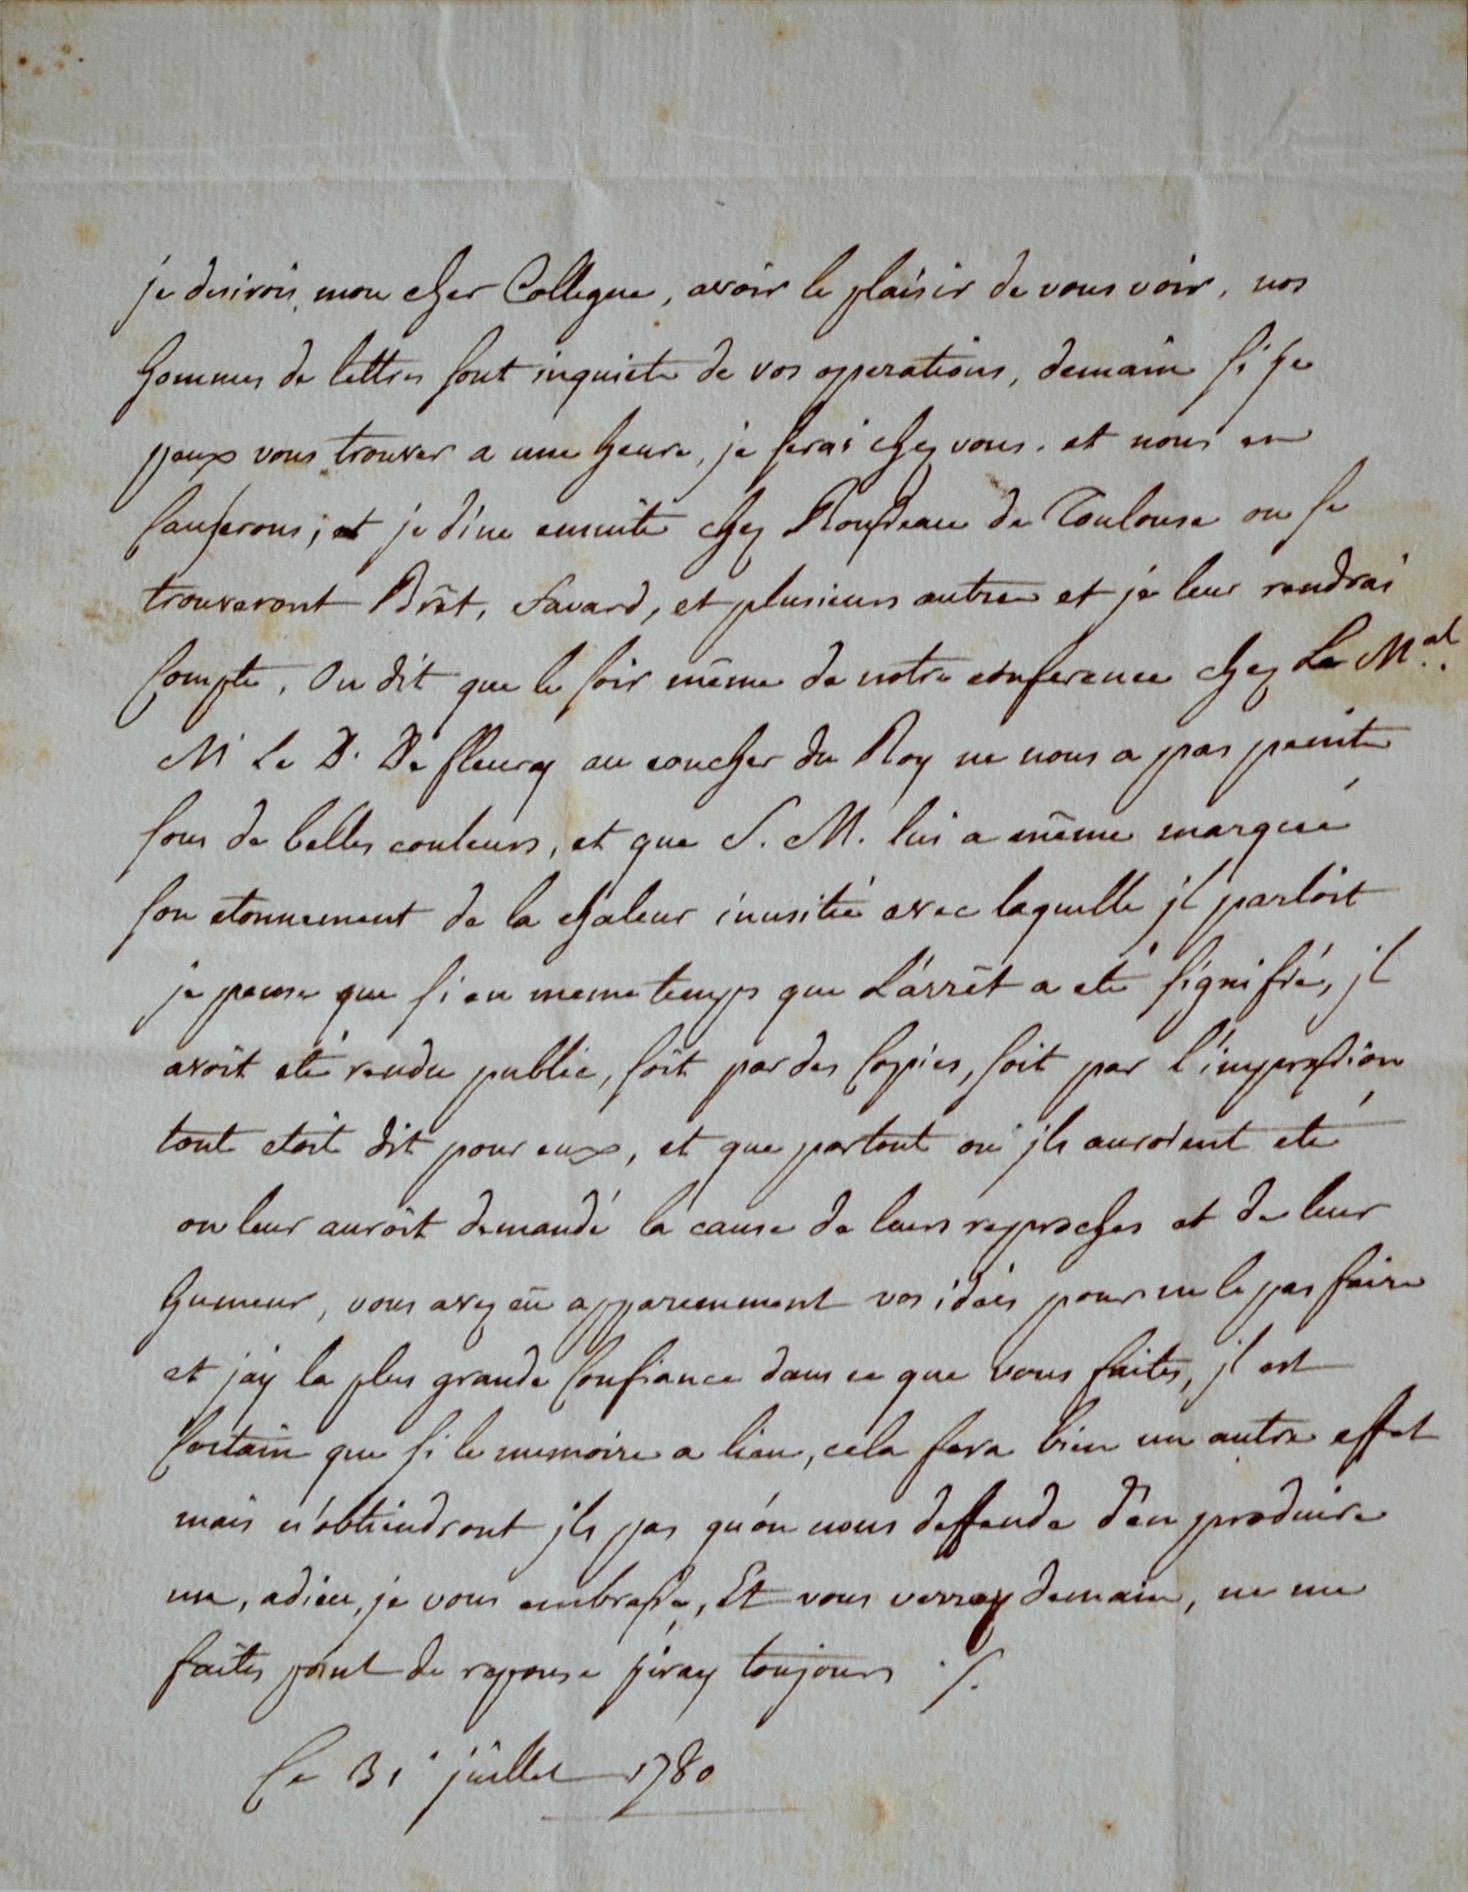 je desirois, mon cher Collegue, avoir le plaisir de vous voir, nos
hommes de lettres sont inquiets de vos operations, demain si je
peux vous trouver a une heure, je serai chez vous. et nous en
causerons, et je dine ensuite chez Rousseau de Toulouse ou se
trouveront Brêt, favard, et plusieurs autres et je leur rendrai
Compte. On dit que le soir même de notre conference chez Le M.al
M Le D. De fleury au coucher du Roy ne nous a pas peints
sous de belles couleurs, et que S. M. lui a même marqué
son etonnement de la chaleur inusitée avec laquelle jl parloit
je pense que si en meme temps que L'arrêt a eté signifié, jl
avoit eté rendu public, soit par des Copies, soit par l'impression
tout etoit dit pour eux, et que partout ou jls auroient eté
on leur auroit demandé la cause de leurs reproches et de leur
humeur, vous avez eü apparemment vos idées pour ne le pas faire
et j'ay la plus grande Confiance dans ce que vous faites, jl est
Certain que si le memoire a lieu, cela fera bien un autre effet
mais n'obtiendront jls pas qu'on nous deffende d'en produire
un, adieu, je vous embrasse, Et vous verray demain, ne me
faites point de reponse j'iray toujours ./.
Ce 31 juillet 1780